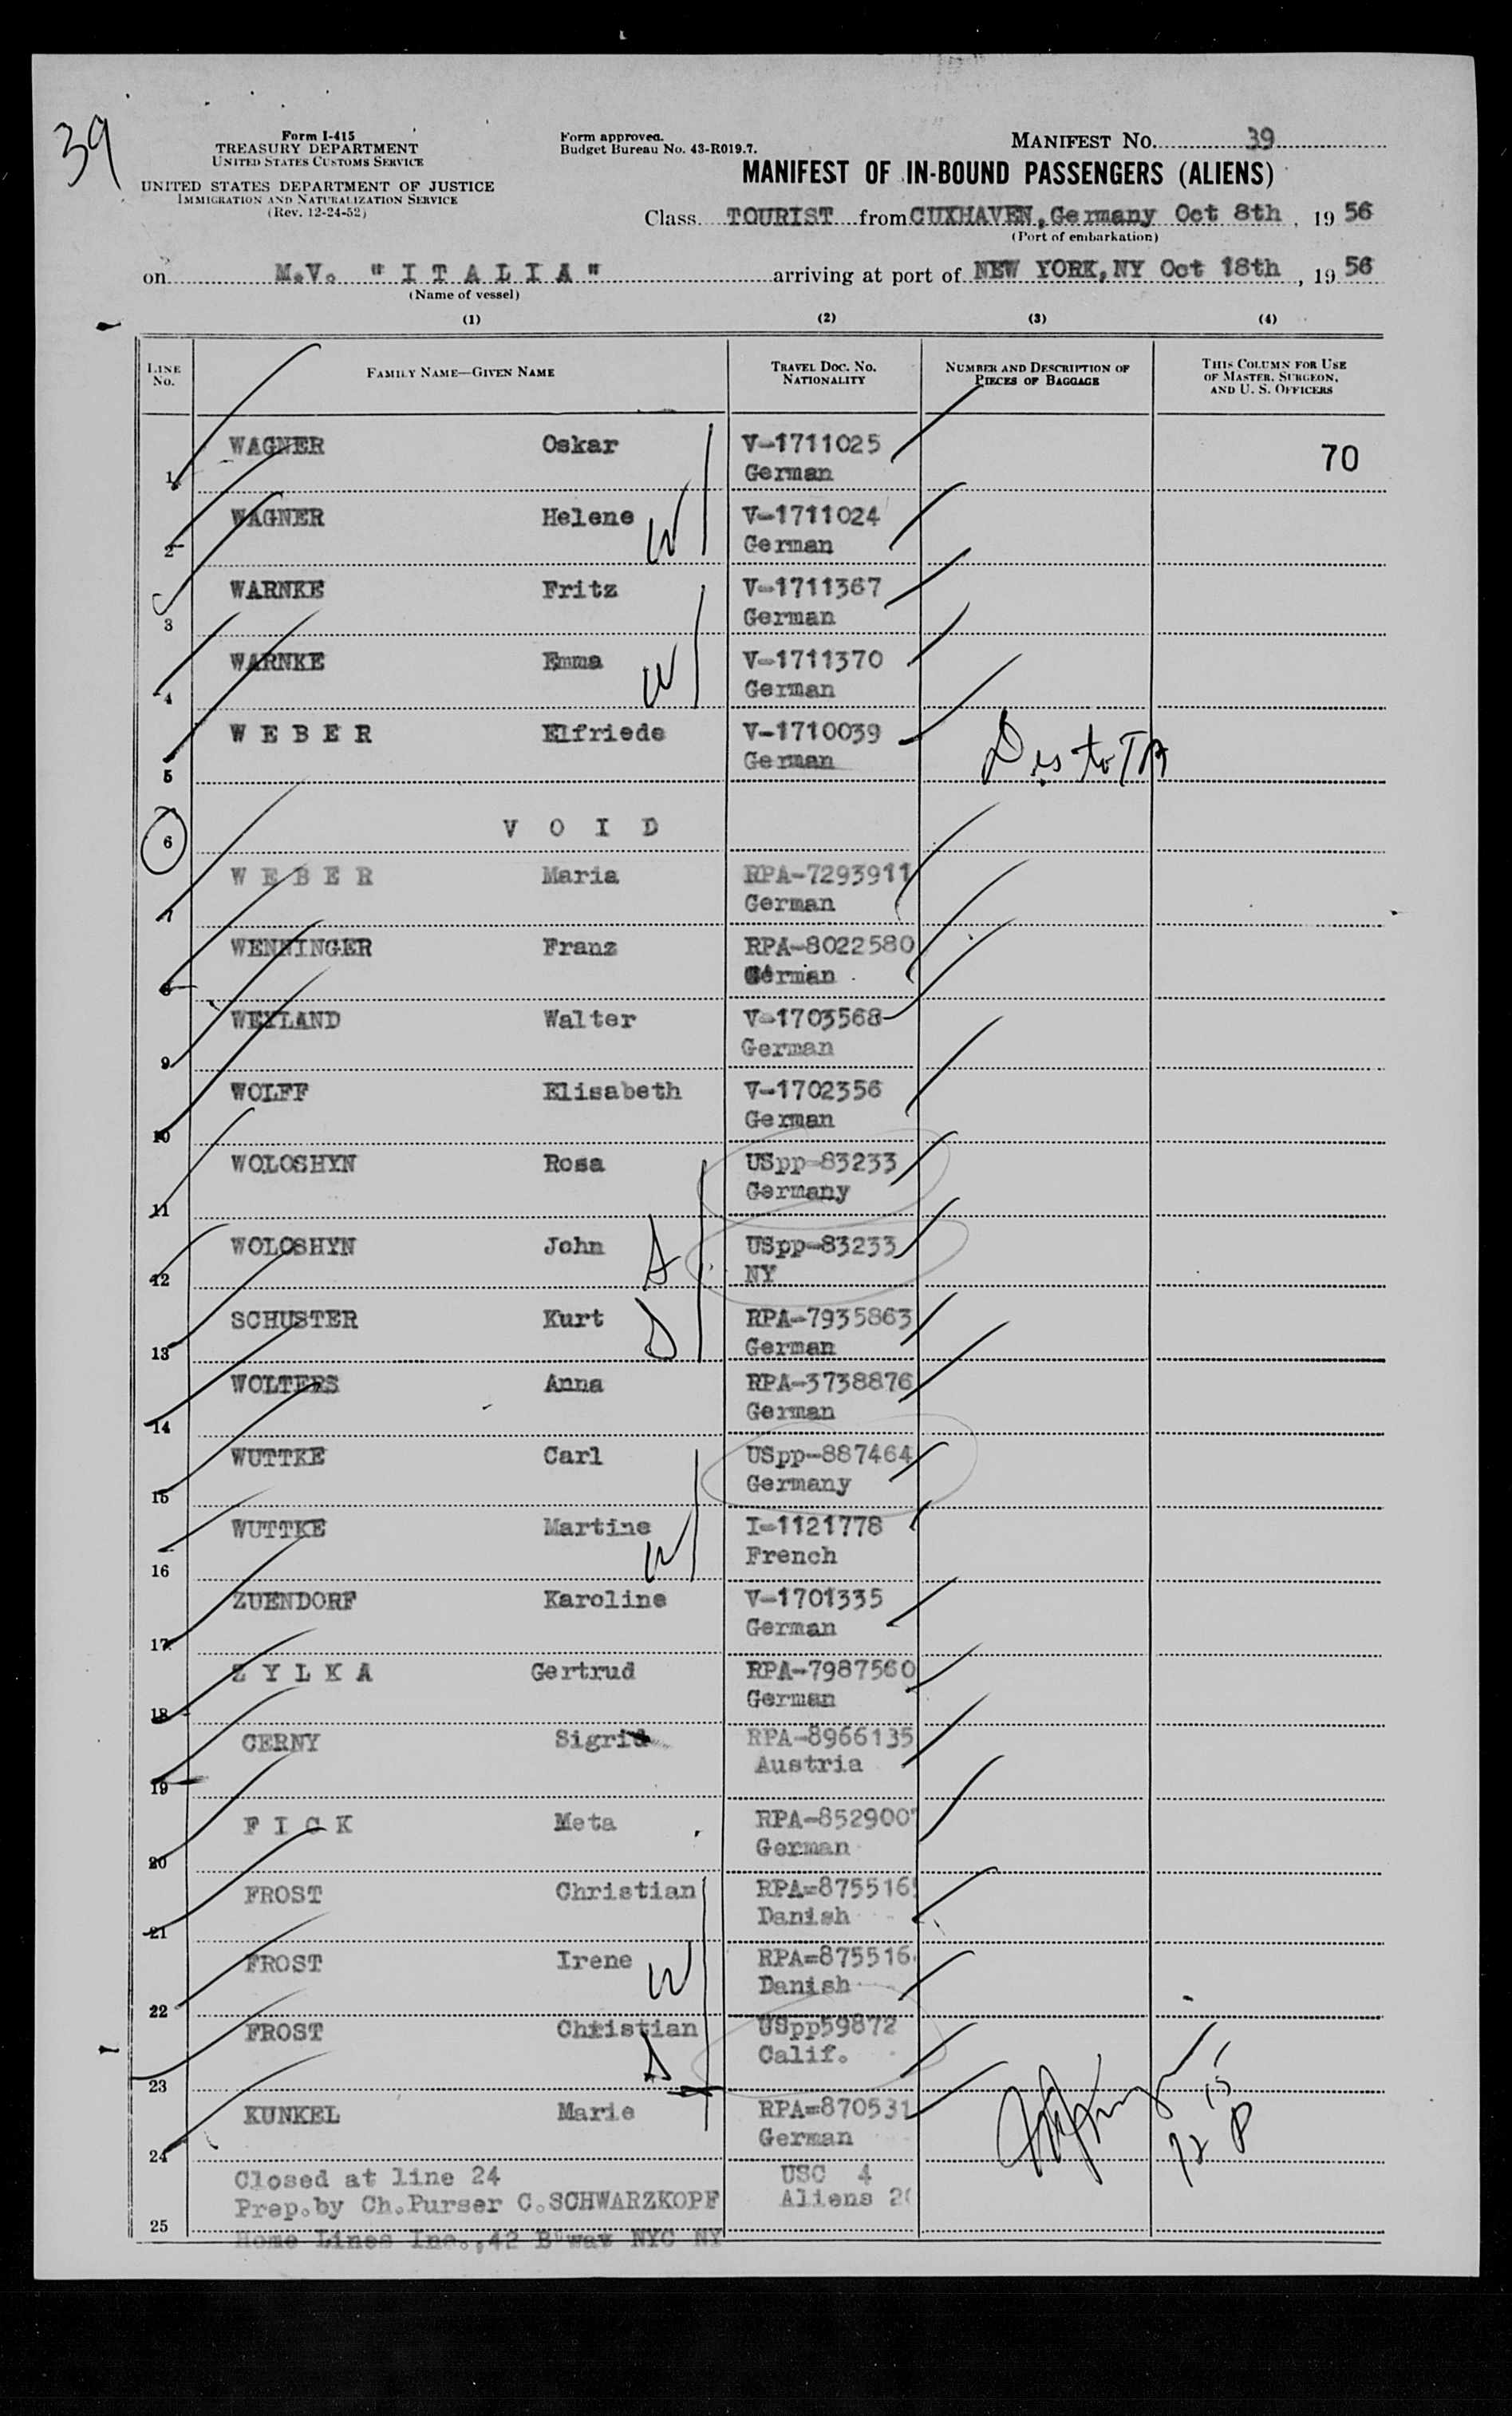 39
Form I-415
TREASURY DEPARTMENT
UNITED STATES CUSTOMS SERVICE
UNITED STATES DEPARTMENT OF JUSTICE
IMMIGRATION AND NATURALIZATION SERVICE
(Rev. 12-24-52)
Form approved.
Budget Bureau No. 43-R019.7.
MANIFEST No. 39
MANIFEST OF IN-BOUND PASSENGERS (ALIENS)
Class TOURIST from CUXHAVEN, Germany Oct 8th, 1956
(Port of embarkation)
on M.V. "I T A L I A" arriving at port of NEW YORK, NY Oct 18th, 1956
(Name of vessel)
(1) (2) (3) (4)
LINE No. FAMILY NAME—GIVEN NAME TRAVEL DOC. NO. NATIONALITY NUMBER AND DESCRIPTION OF PIECES OF BAGGAGE THIS COLUMN FOR USE OF MASTER, SURGEON, AND U. S. OFFICERS
1 WAGNER Oskar V-1711025 70
German
2 WAGNER Helene W V-1711024
German
3 WARNKE Fritz V-1711367
German
4 WARNKE Emma W V-1711370
German
5 W E B E R Elfriede V-1710039 Des to TA
German
6 V O I D
7 W E B E R Maria RPA-7293911
German
8 WENNINGER Franz RPA-8022580
German
9 WEYLAND Walter V-1703568
German
10 WOLFF Elisabeth V-1702356
German
11 WOLOSHYN Rosa USpp-83233
Germany
12 WOLOSHYN John S USpp-83233
NY
13 SCHUSTER Kurt S RPA-7935863
German
14 WOLTERS Anna RPA-3738876
German
15 WUTTKE Carl USpp-887464
Germany
16 WUTTKE Martine W I-1121778
French
17 ZUENDORF Karoline V-1701335
German
18 Z Y L K A Gertrud RPA-7987560
German
19 CERNY Sigrid RPA-8966135
Austria
20 F I C K Meta RPA-852900
German
21 FROST Christian RPA=875516
Danish
22 FROST Irene W RPA=875516
Danish
23 FROST Christian S USpp59872
Calif.
24 KUNKEL Marie RPA=870531
German
15
12 P
Closed at line 24 USC 4
Prep.by Ch.Purser C.SCHWARZKOPF Aliens 20
25
Home Lines Inc.,42 B'way NYC NY